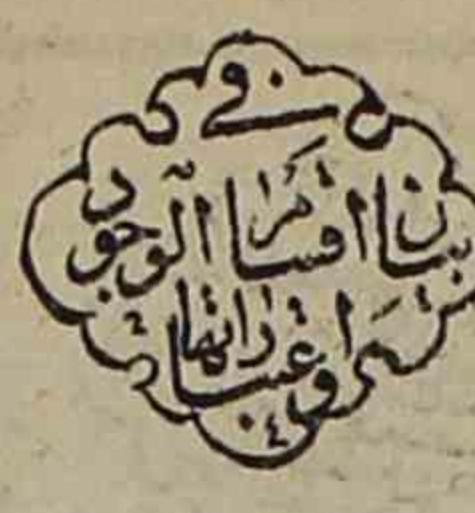 في
بيان اقسام الوجود
واعتباراتها
٤